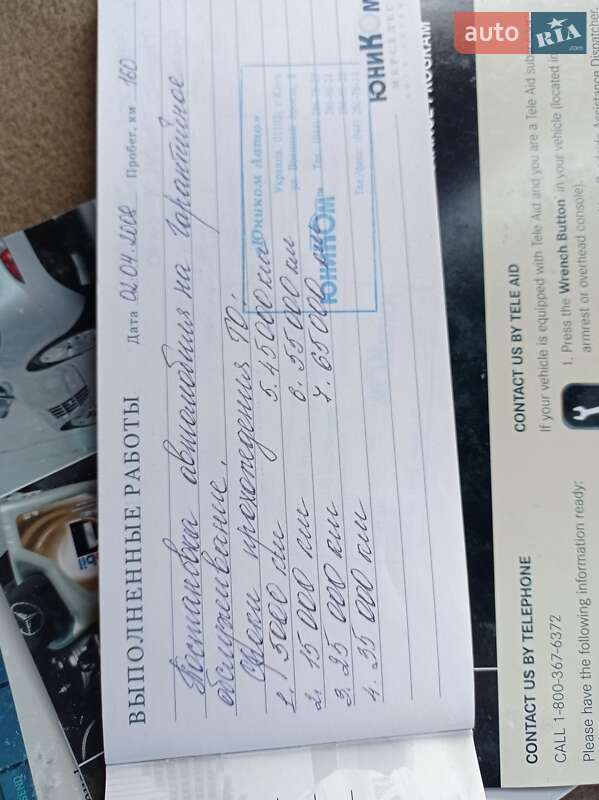 ВЫПОЛНЕННЫЕ РАБОТЫ Дата 02.04.2008 Пробег, км 160
Постановка автомобиля на гарантийное
обслуживание.
Сроки прохождения ТО.
1. 5000 км 5. 45000 км
2. 15 000 км 6. 55000 км
3. 25 000 км 7. 65000 км
4. 35 000 км
«Юником Авто»
ЮНИКОМ
ЮниКОМ
PROGRAM
CONTACT US BY TELE AID
If your vehicle is equipped with Tele Aid and you are a Tele Aid
1. Press the Wrench Button in your vehicle (located in
armrest or overhead console).
Assistance Dispatcher.
CONTACT US BY TELEPHONE
CALL 1-800-367-6372
Please have the following information ready:
auto RIA.com